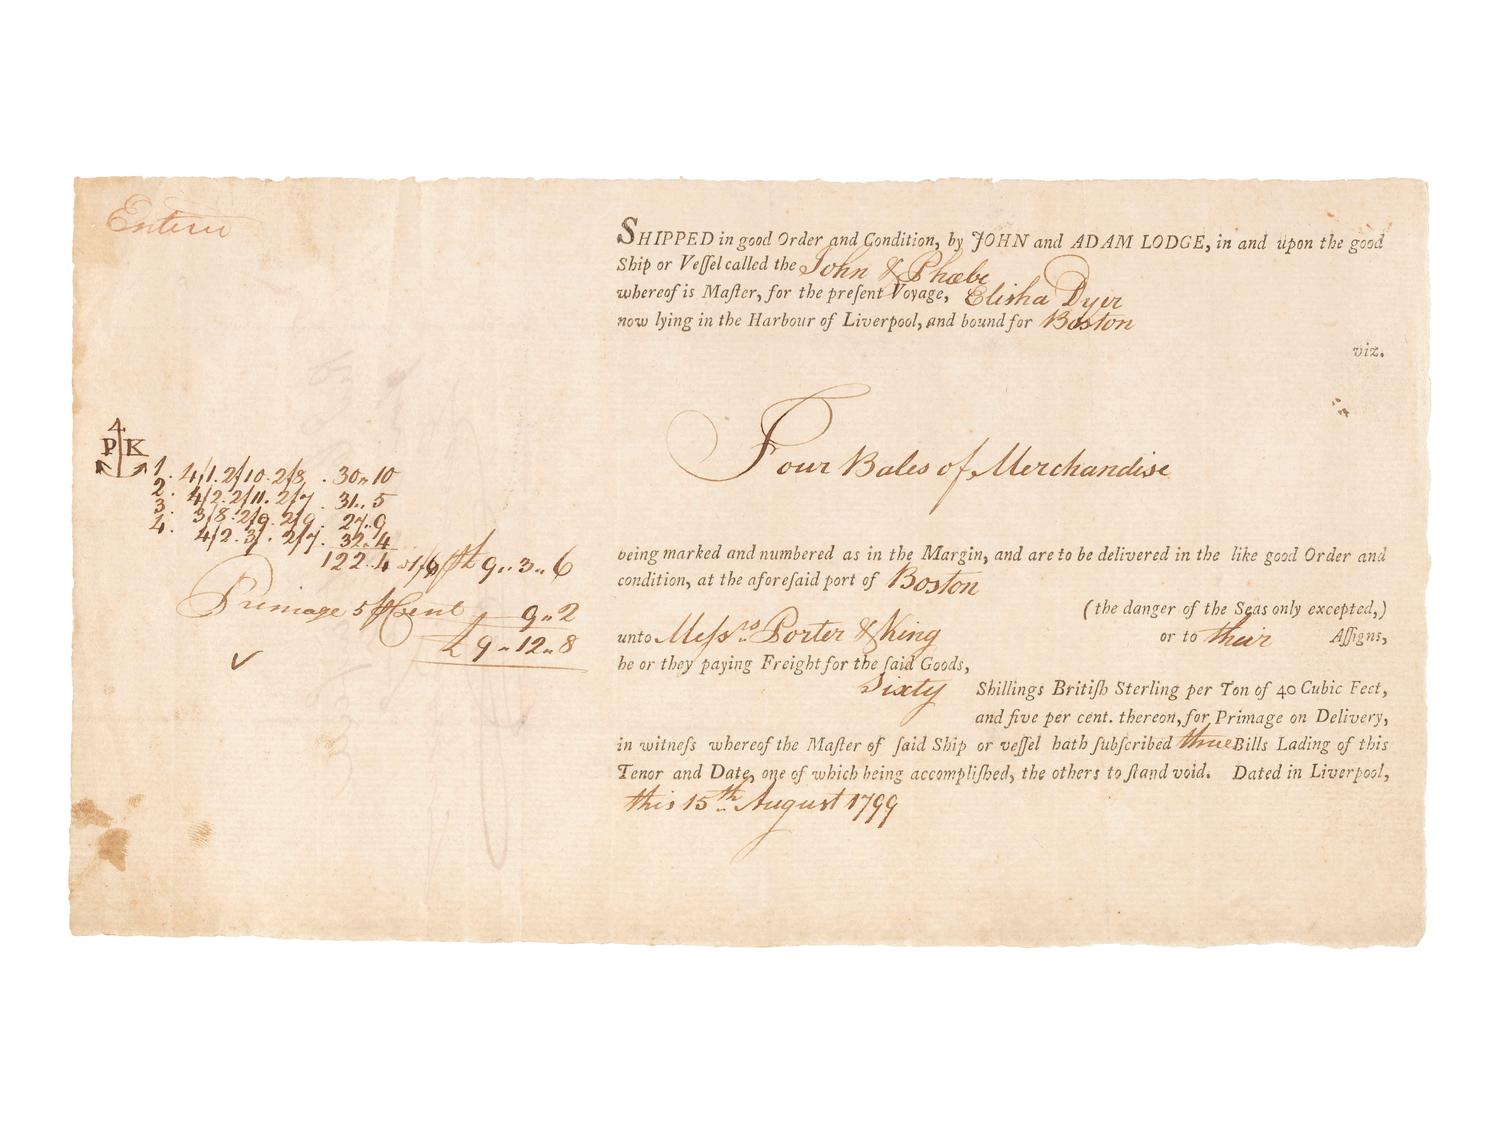 Enterd
SHIPPED in good Order and Condition, by JOHN and ADAM LODGE, in and upon the good
Ship or Veſſel called the John & Phœbe
whereof is Maſter, for the preſent Voyage, Elisha Dyer
now lying in the Harbour of Liverpool, and bound for Boston
viz.
4
P K
1. 4/1. 2/10. 2/8 . 30,, 10
2. 4/2. 2/11. 2/7 . 31,, 5
3. 3/8. 2/9. 2/9. 27,, 9
4. 4/2. 3/. 2/7. 32,, 4
122,, 4 1/6 £ 9,, 3,, 6
Primage 5 ⅌ Cent 9,, 2
£ 9,, 12,, 8
Four Bales of Merchandise
being marked and numbered as in the Margin, and are to be delivered in the like good Order and
condition, at the aforeſaid port of Boston
(the danger of the Seas only excepted,)
unto Meſsrs Porter & King or to their Aſſigns,
he or they paying Freight for the ſaid Goods,
Sixty Shillings Britiſh Sterling per Ton of 40 Cubic Feet,
and five per cent. thereon, for Primage on Delivery,
in witneſs whereof the Maſter of ſaid Ship or veſſel hath ſubſcribed three Bills Lading of this
Tenor and Date, one of which being accompliſhed, the others to ſtand void. Dated in Liverpool,
this 15th August 1799